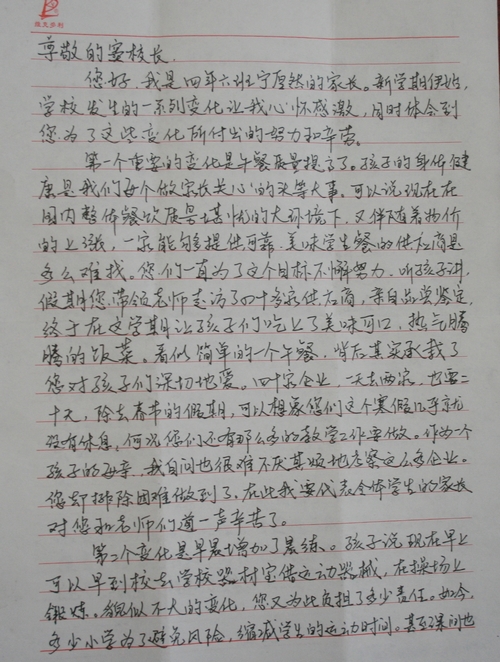 尊敬的窦校长.
您好,我是四年六班宁厚然的家长。新学期伊始,
学校发生的一系列变化让我心怀感激,同时体会到
您为了这些变化所付出的努力和辛劳。
第一个重要的变化是午餐质量提高了。孩子的身体健
康是我们每个做家长关心的头等大事。可以说现在在
国内整体餐饮质量堪忧的大环境下,又伴随着物价
的上涨,一家能够提供可靠、美味学生餐的供应商是
多么难找。您们一直为了这个目标不懈努力,听孩子讲,
假期您带领老师走访了四十多家供应商,亲自品尝鉴定,
终于在这学期让孩子们吃上了美味可口,热气腾
腾的饭菜。看似简单的一个午餐,背后其实承载了
您对孩子们深切地爱。四十家企业,一天去两家,也要二
十天,除去春节的假期,可以想象您们这个寒假几乎就
没有休息。何况您们还有那么多的教学工作要做。作为一个
孩子的母亲,我自问也很难不厌其烦地考察这么多企业。
您却排除困难做到了,在此我要代表全体学生的家长
对您和老师们道一声辛苦了。
第二个变化是早晨增加了晨练。孩子说现在早上
可以早到校去学校器材室借运动器械,在操场上
锻炼。貌似不大的变化,您又为此负担了多少责任。如今,
多少小学为了避免风险,缩减学生的运动时间。甚至课间也